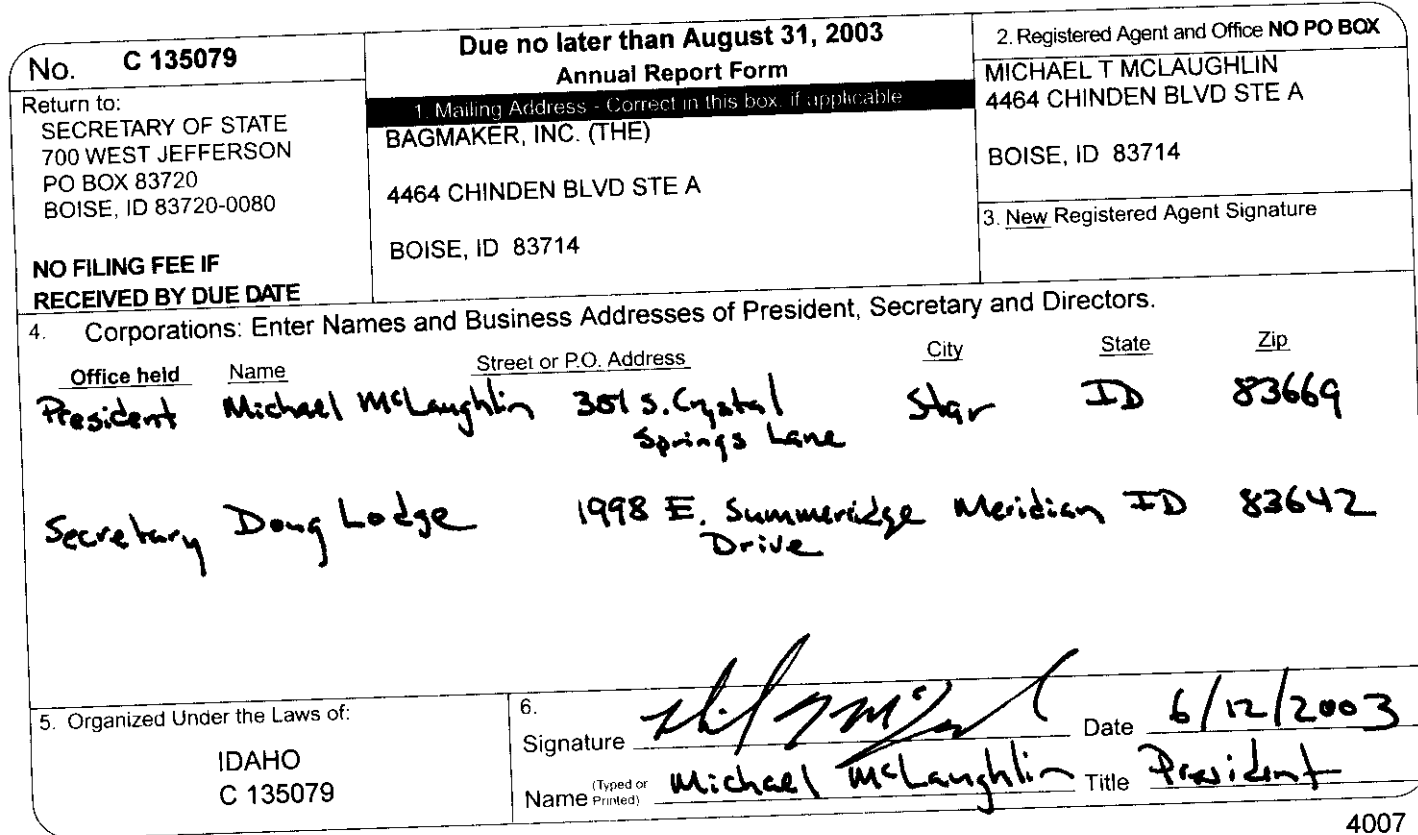 No. C 135079
Return to:
SECRETARY OF STATE
700 WEST JEFFERSON
PO BOX 83720
BOISE, ID 83720-0080
NO FILING FEE IF
RECEIVED BY DUE DATE
Due no later than August 31, 2003
Annual Report Form
1. Mailing Address - Correct in this box, if applicable
BAGMAKER, INC. (THE)
4464 CHINDEN BLVD STE A
BOISE, ID 83714
2. Registered Agent and Office NO PO BOX
MICHAEL T MCLAUGHLIN
4464 CHINDEN BLVD STE A
BOISE, ID 83714
3. New Registered Agent Signature
4. Corporations: Enter Names and Business Addresses of President, Secretary and Directors.
Office held Name Street or P.O. Address City State Zip
President Michael McLaughlin S. Crystal Star ID 83669
Springs Lane
Secretary Doug Lodge 1998 E. Summeridge Meridian ID 83642
Drive
5. Organized Under the Laws of:
IDAHO
C 135079
6.
Signature Date 6/12/2003
Name (Typed or Printed) Michael McLaughlin Title President
4007